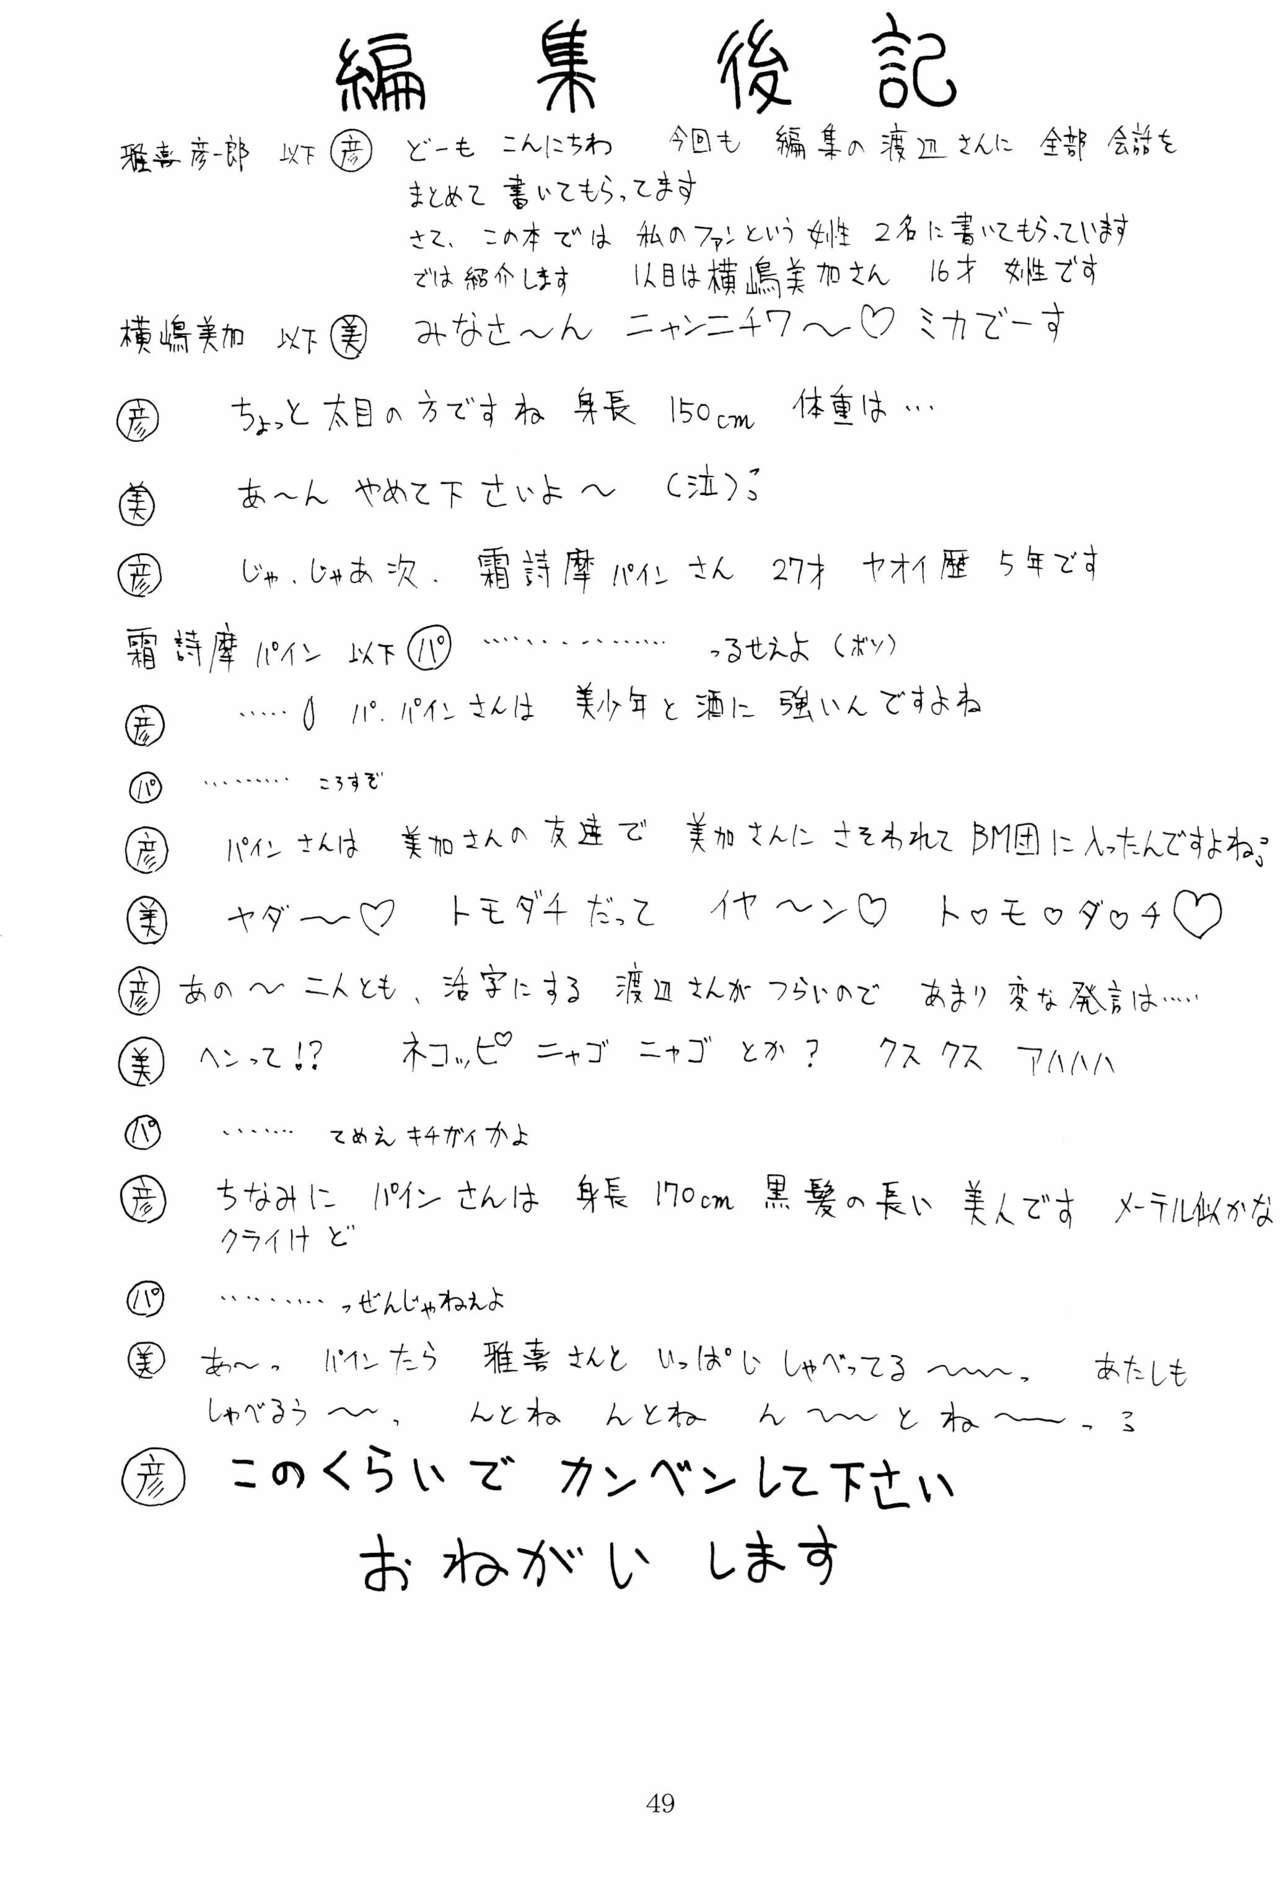 編集後記
雅喜彦一郎 以下彦 どーも こんにちわ 今回も 編集の渡辺さんに 全部 会話を
まとめて 書いてもらってます
さて、この本では 私のファンという 女性 2名に書いてもらっています
では紹介します 1人目は横嶋美加さん 16才 女性です
横嶋美加 以下美 みなさ〜ん ニャンニチワ〜♡ ミカでーす
彦 ちょっと太目の方ですね 身長 150cm 体重は…
美 あ〜ん やめて下さいよ〜 (泣)
彦 じゃ、じゃあ次、霜詩摩パインさん 27才 ヤオイ歴 5年です
霜詩摩パイン 以下パ ……………… っるせえよ(ボソ)
彦 …… パ、パインさんは 美少年と酒に 強いんですよね
パ ……… ころすぞ
彦 パインさんは 美加さんの友達で 美加さんに さそわれて BM団に入ったんですよね
美 ヤダ〜♡ トモダチだって イヤ〜ン♡ ト♡モ♡ダ♡チ♡
彦 あの〜 二人とも、活字にする 渡辺さんが つらいので あまり 変な発言は……
美 ヘンって!? ネコッピ♡ ニャゴ ニャゴ とか? クス クス アハハハ
パ …… てめえキチガイかよ
彦 ちなみに パインさんは 身長 170cm 黒髪の長い 美人です メーテル似かな
クライけど
パ ………… っぜんじゃねえよ
美 あ〜っ パインたら 雅喜さんと いっぱい しゃべってる〜〜〜っ あたしも
しゃべるう〜〜っ んとね んとね ん〜〜とね〜〜っ
彦 このくらいで カンベンして下さい
おねがい します
49